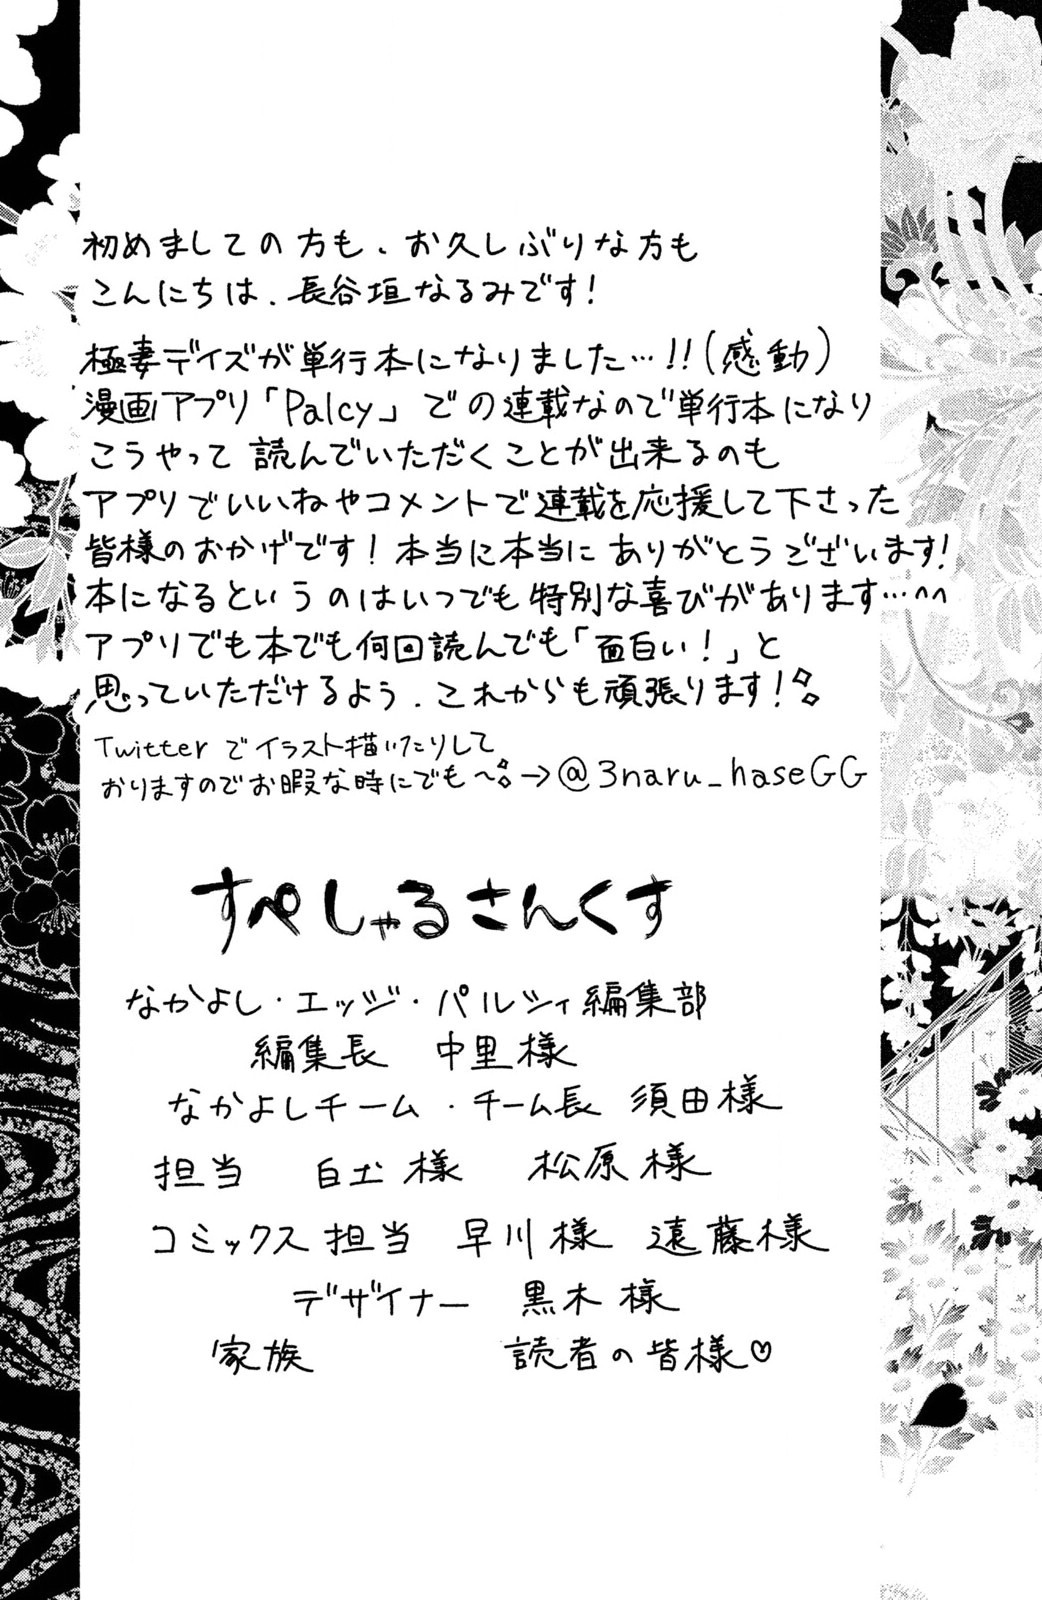 初めましての方も、お久しぶりな方も
こんにちは、長谷垣なるみです!
極妻デイズが単行本になりました…!!(感動)
漫画アプリ「Palcy」での連載なので単行本になり
こうやって読んでいただくことが出来るのも
アプリでいいねやコメントで連載を応援して下さった
皆様のおかげです!本当に本当にありがとうございます!
本になるというのはいつでも特別な喜びがあります…^^
アプリでも本でも何回読んでも「面白い!」と
思っていただけるよう、これからも頑張ります!
Twitterでイラスト描いたりして
おりますのでお暇な時にでも〜→@3naru_haseGG
すぺしゃるさんくす
なかよし・エッジ・パルシィ編集部
編集長 中里様
なかよしチーム・チーム長 須田様
担当 白土様 松原様
コミックス担当 早川様 遠藤様
デザイナー 黒木様
家族 読者の皆様♡